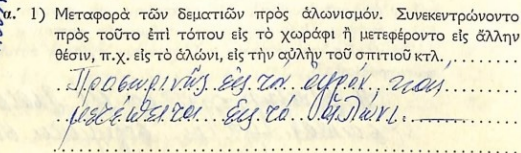 α.′ 1) Μεταφορὰ τῶν δεματιῶν πρὸς ἁλωνισμόν. Συνεκεντρώνοντο
πρὸς τοῦτο ἐπὶ τόπου εἰς τὸ χωράφι ἢ μετεφέροντο εἰς ἄλλην
θέσιν, π.χ. εἰς τὸ ἁλώνι, εἰς τὴν αὐλὴν τοῦ σπιτιοῦ κτλ. . . . . . . . .
Προσωρινῶς εἰς τόν ἀγρόν καί
μετέπειτα εἰς τό ἁλώνι.